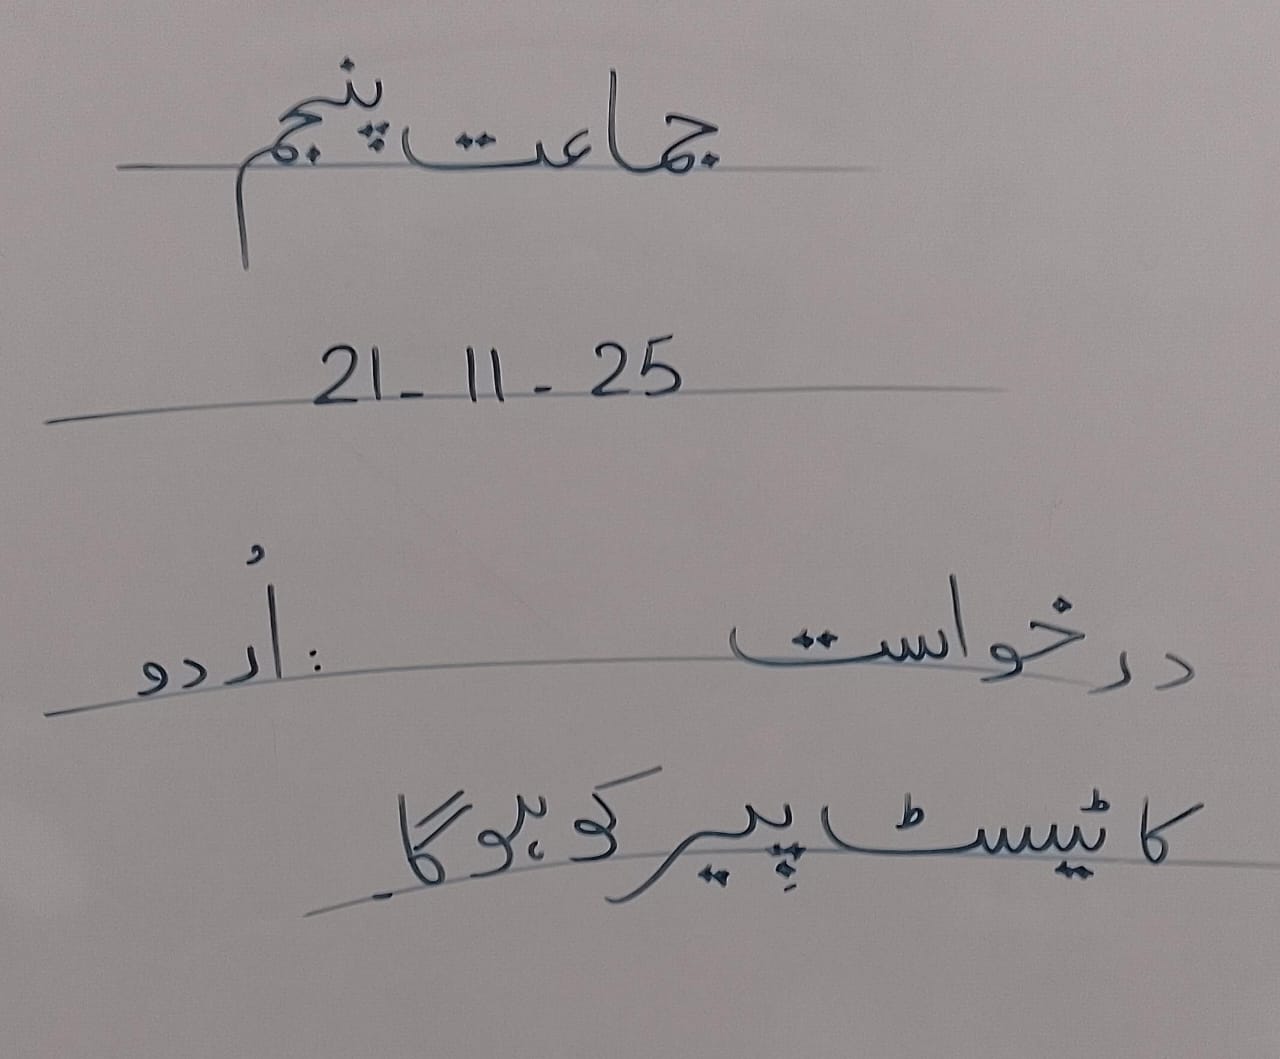 جماعت پنجم
21-11-25
درخواست :اُردو
کا ٹیسٹ پیر کو ہوگا۔